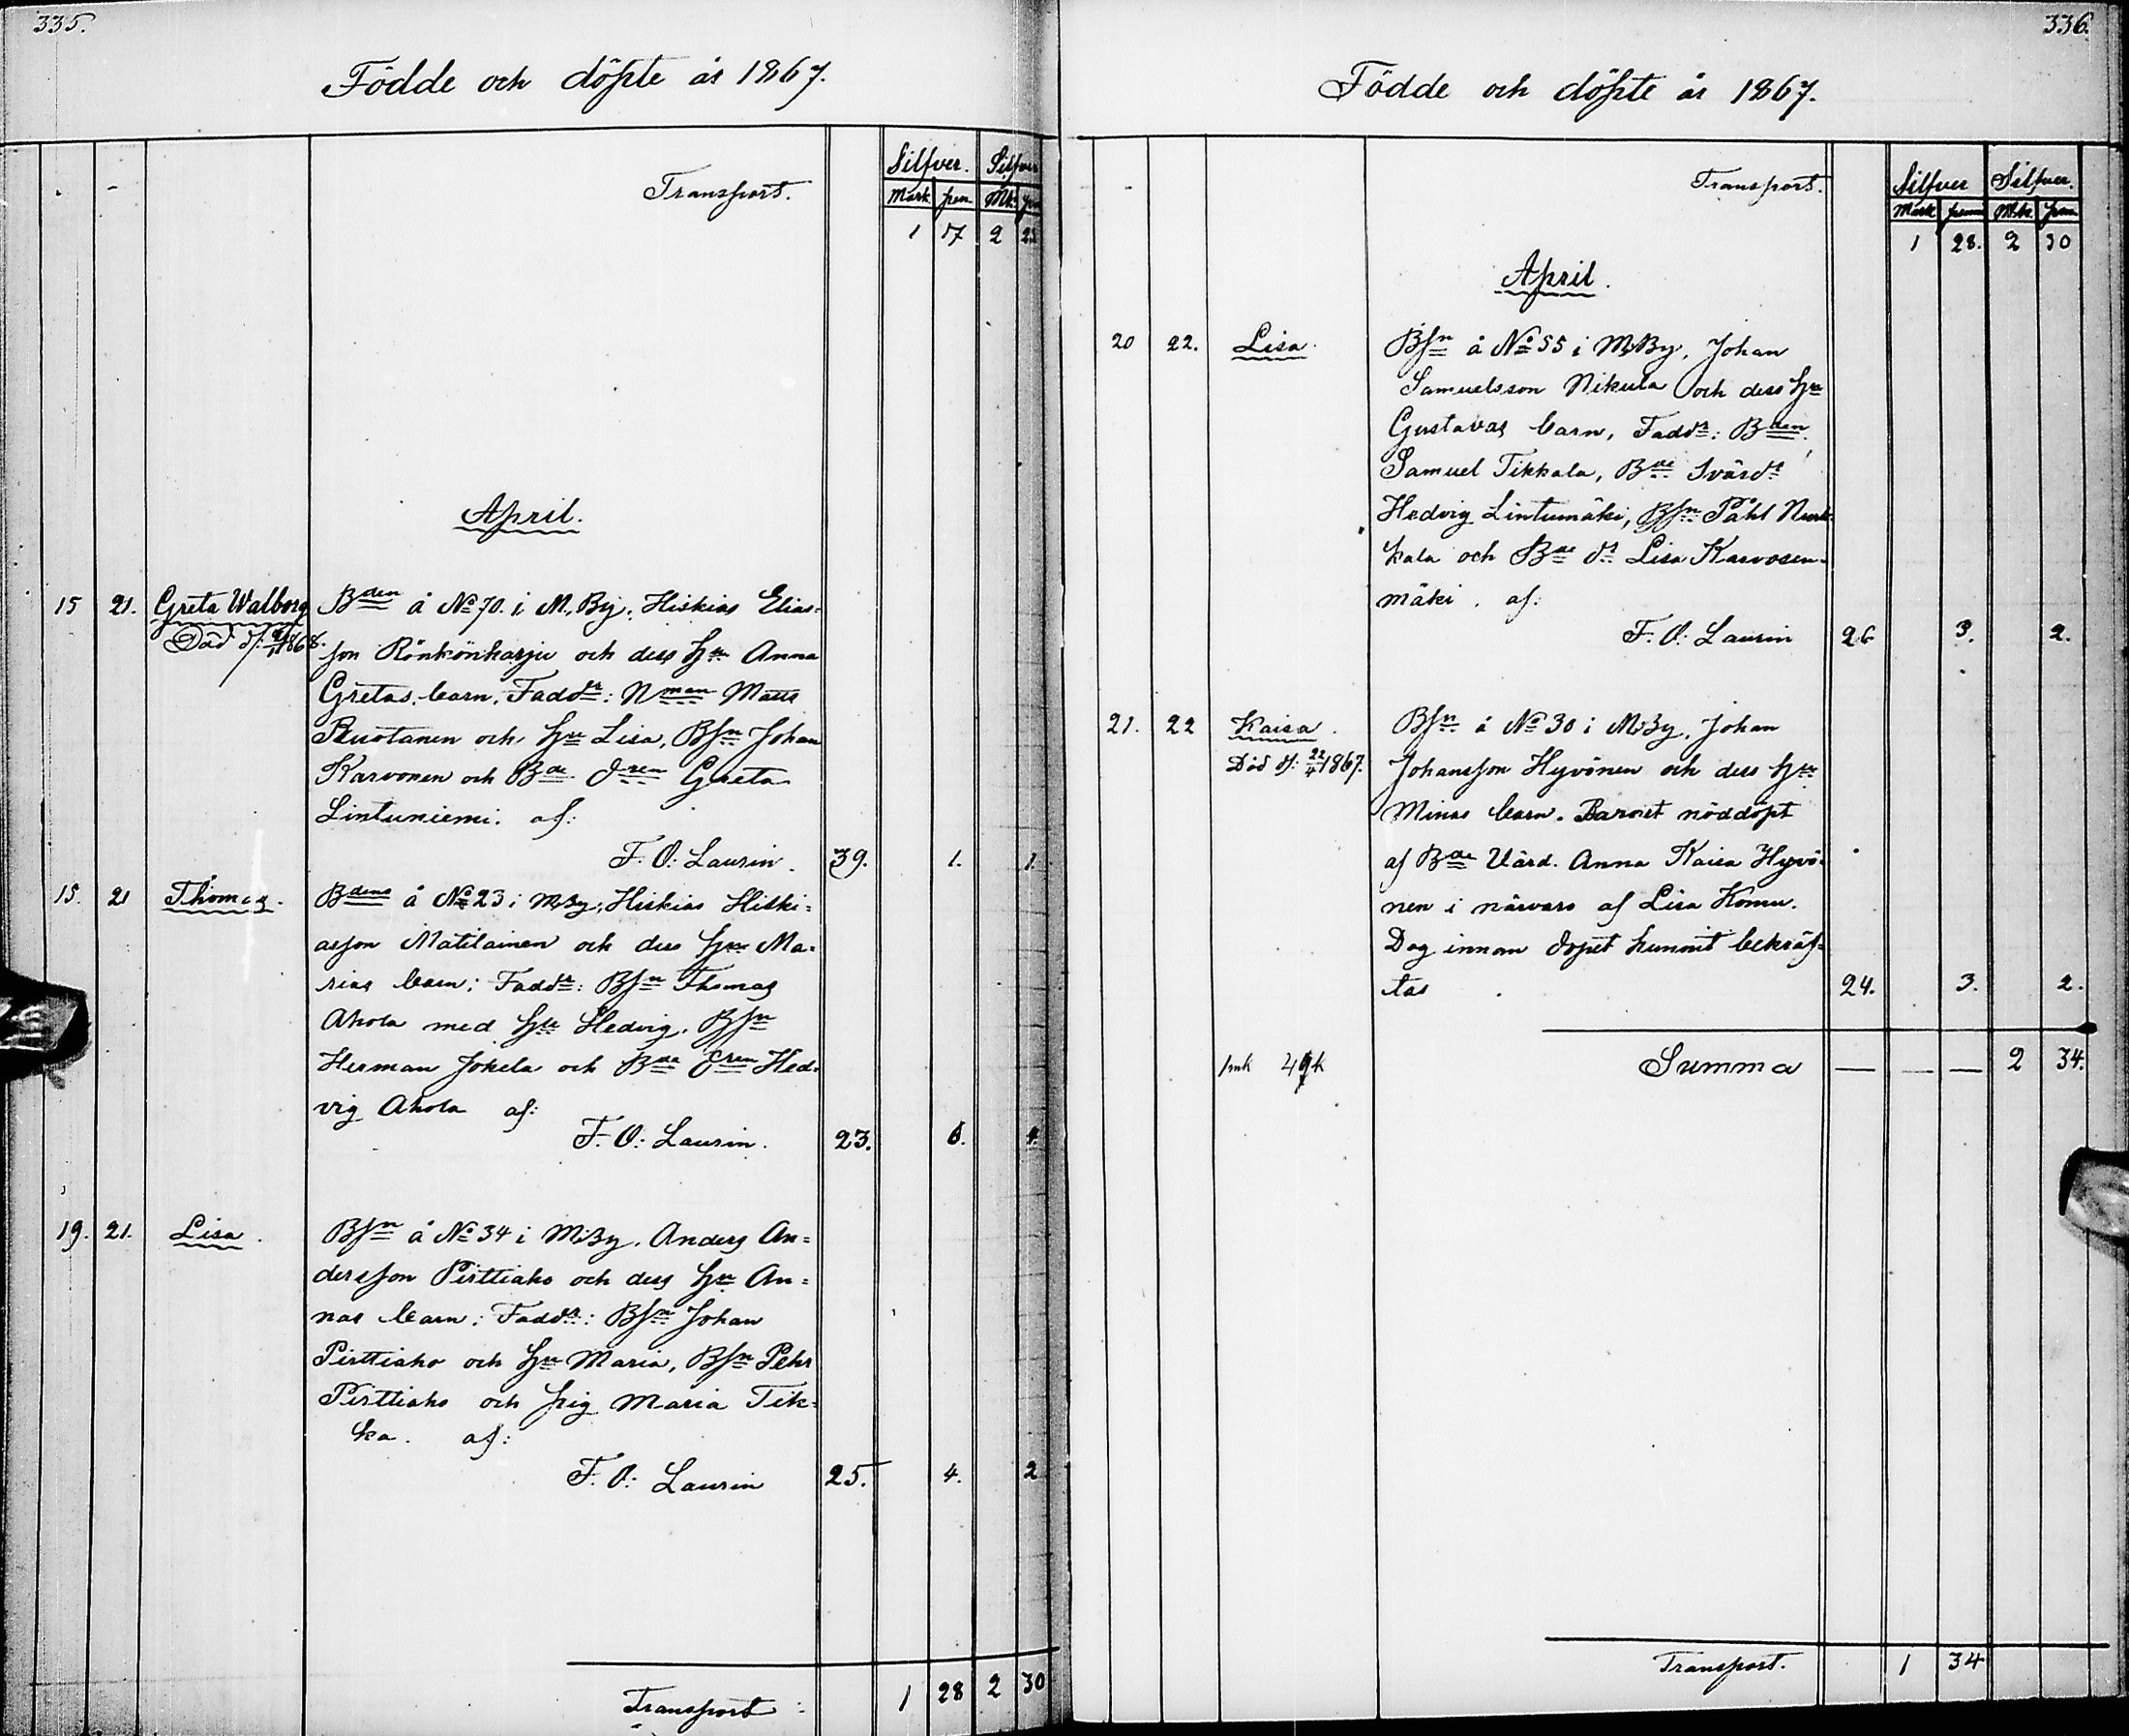 335.
Födde och döpte år 1867.
Transport.
Silfver. Silfver
Mark pen. Mk.
1 17 2
April.
15 21. Greta Walborg Bden å No 70. i M. By. Hiskias Elias-
Död d: 1868. son Rönkönharju och dess Hu Anna
Gretas barn, Faddr: Nman Matts
Ruotanen och Hu Lisa, Bsn Johan
Karvonen och Bde dren Greta
Lintuniemi. af:
F. O: Laurin. 39. 1. 1
15. 21 Thomas. Bdens å No 23 i M.By; Hiskias Hiski-
asson Matilainen och dess Hu Ma-
rias barn; Faddr: Bsn Thomas
Ahola med Hu Hedvig. Bsn
Herman Jokela och Bde dren Hed-
vig Ahola af:
F. O: Laurin. 23. 6.
19. 21. Lisa. Bsn å No 34 i M.By. Anders An=
dersson Pirttiaho och dess Hu An=
nas barn: Faddr: Bsn Johan
Pirttiaho och Hu Maria, Bsn Pehr
Pirttiaho och pig Maria Tik-
ka. af:
F. O: Laurin 25. 4. 2
Transport: 1 28 2 30
336.
Födde och döpte år 1867.
Transport.
Silfver Silfver.
Mark penni Mk. pen
1 28. 2 30
April.
20 22. Lisa. Bsn å No 55 i M.By, Johan
Samuelsson Nikula och dess Hu
Gustavas barn, Faddr: Bden
Samuel Tikkala, Bde Svärdr
Hedvig Lintumäki, Bsn Påhl Nurk-
kala och Bde dr Lisa Karvosen-
mäki. af:
F. O: Laurin 26 3. 2.
21. 22 Kaisa. Bsn å No 30 i M.By, Johan
Död d: 22/4 1867. Johansson Hyvönen och dess Hu
Minas barn. Barnet nöddöpt
af Bde Värd. Anna Kaisa Hyvö-
nen i närvaro af Lisa Komu.
Dog innan dopet hunnit bekräf-
tas 24. 3. 2.
1mk Summa — — — 2 34.
Transport. 1 34